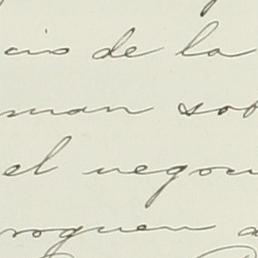 cio de la
man sob
el negoci
roguen a